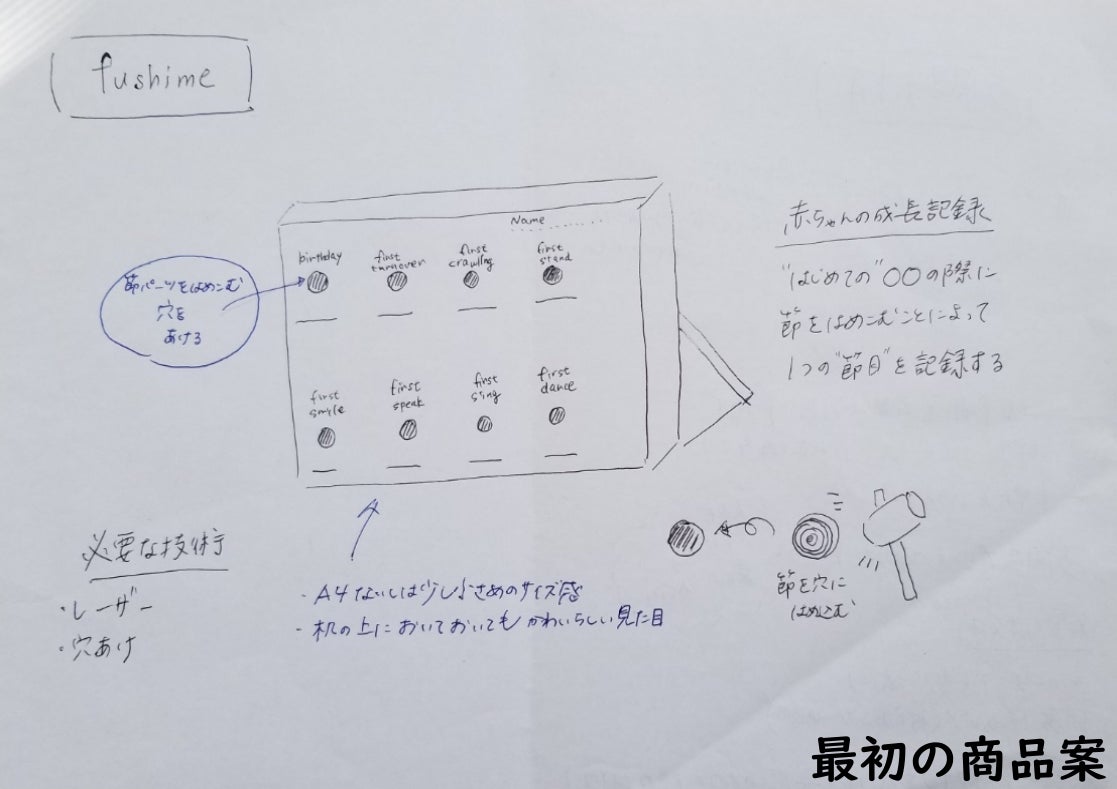 fushime
Name
birthday
first
turnover
first
crawling
first
stand
節パーツをはめこむ
穴を
あける
first
smile
first
speak
first
sing
first
dance
赤ちゃんの成長記録
"はじめての"〇〇の際に
節をはめこむことによって
1つの"節目"を記録する
必要な技術
・レーザー
・穴あけ
・A4ないしは少し小さめのサイズ感
・机の上においておいてもかわいらしい見た目
節を穴に
はめこむ
最初の商品案